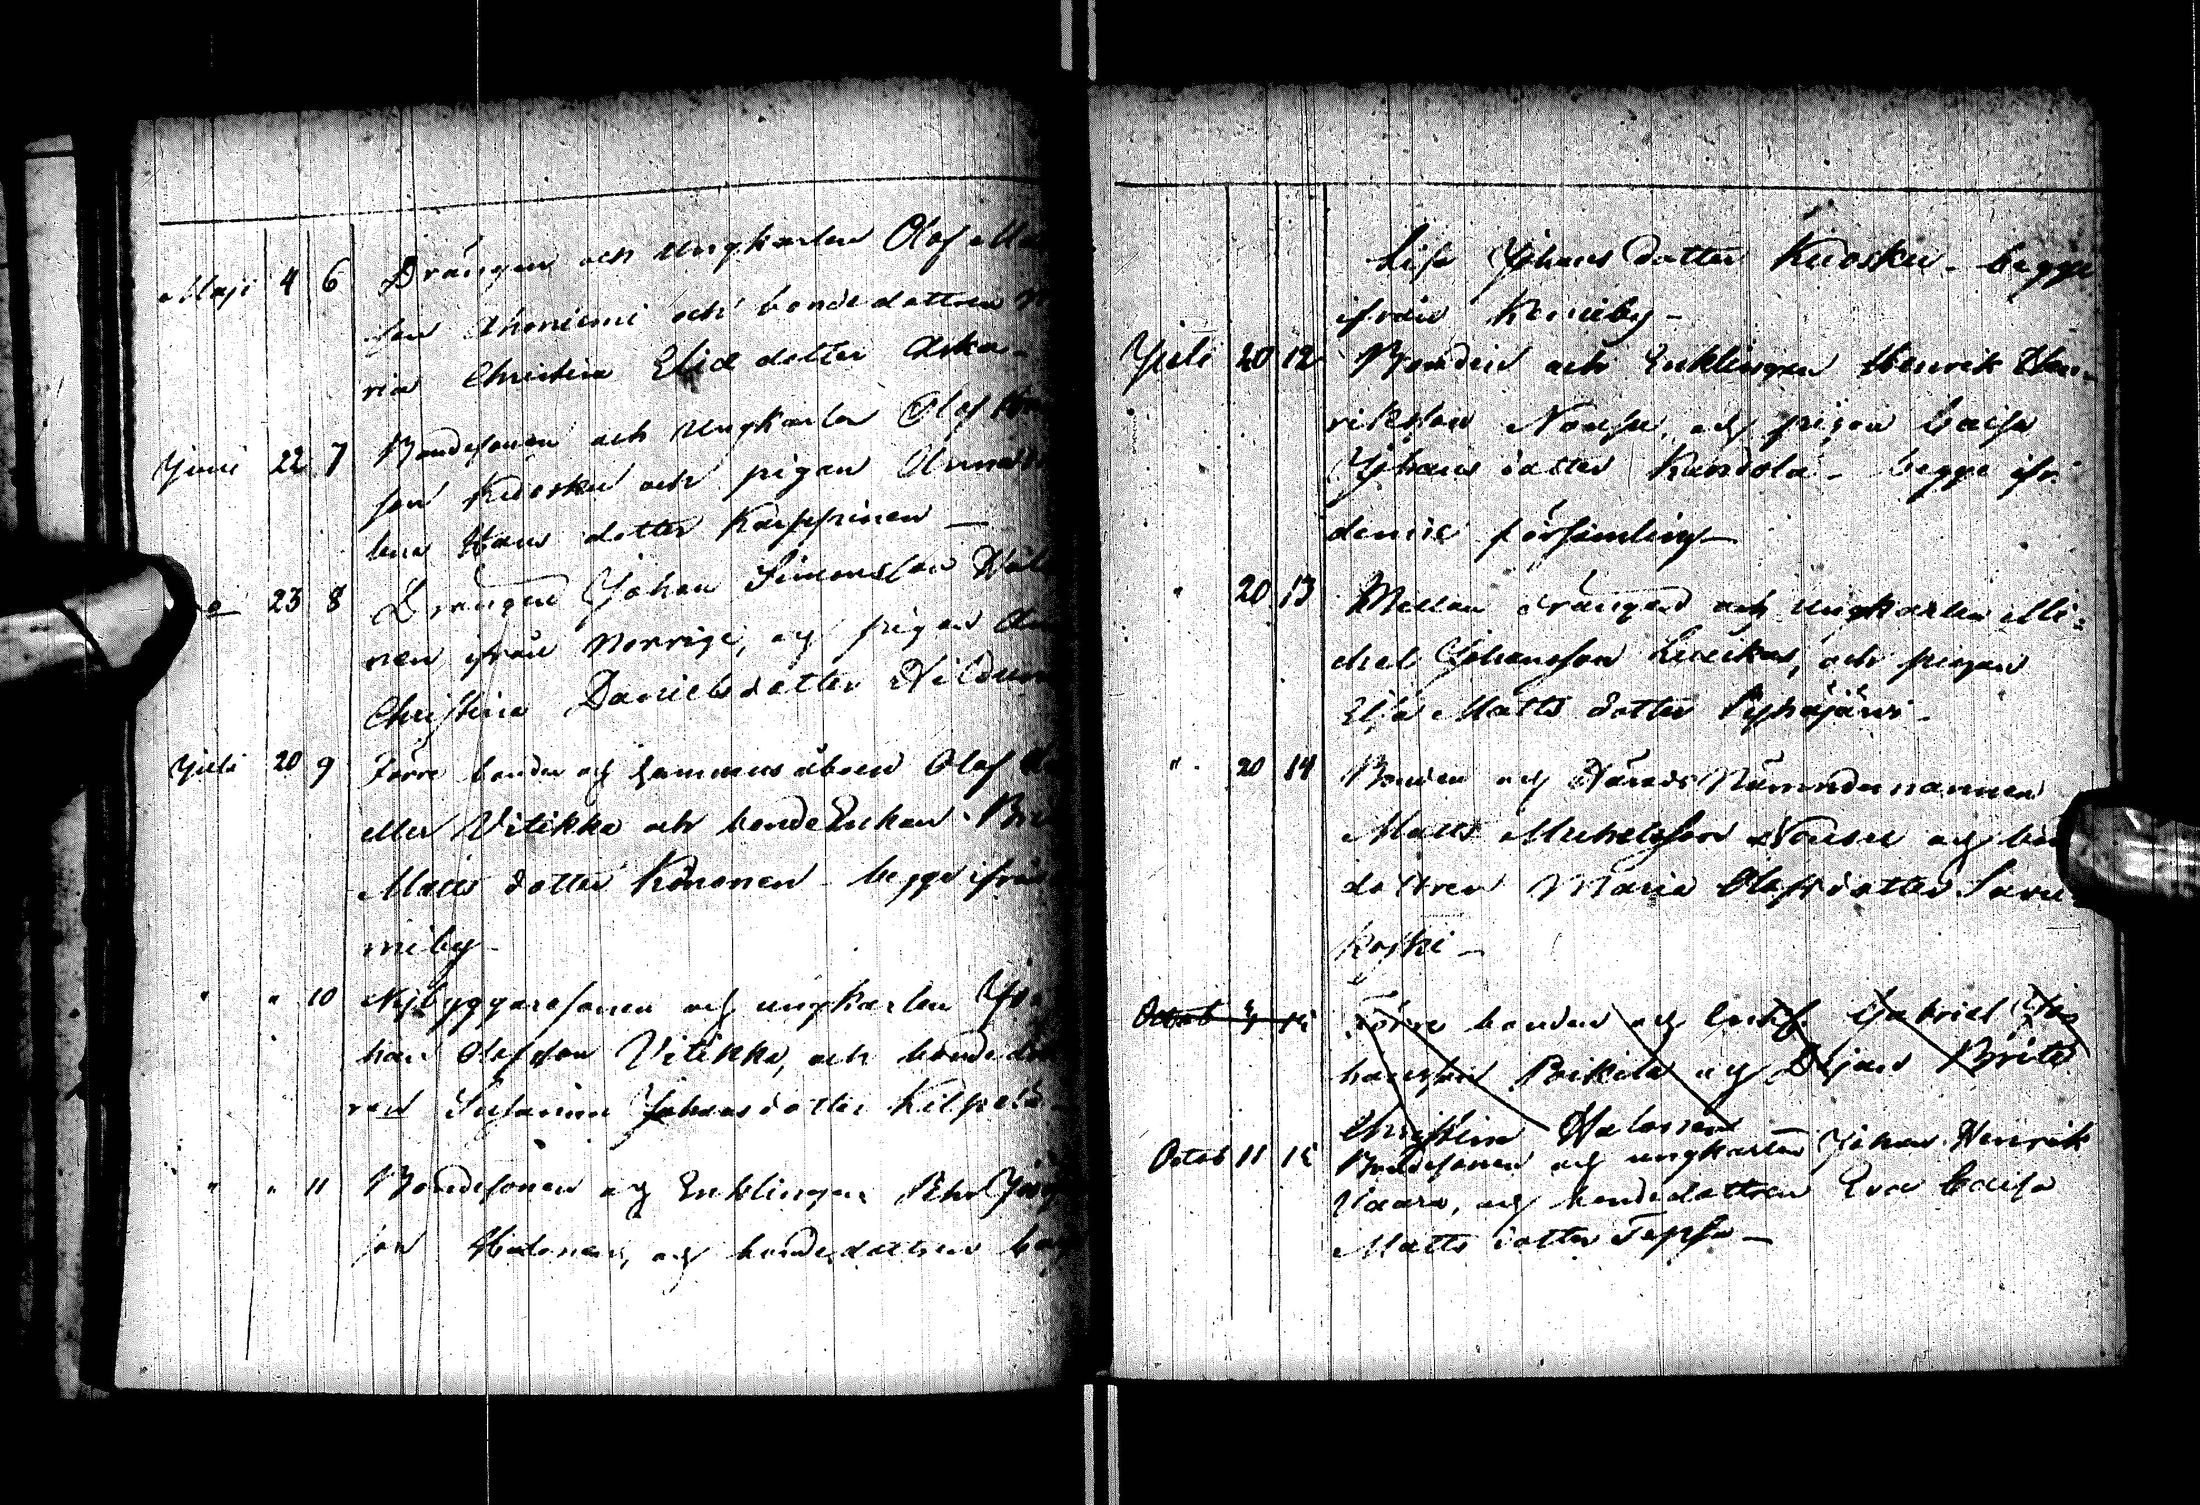 Maji 4 6 Drängen och Ungkarlen Olof
son Ahoniemi och bondedottren
ria Christina Eliædotter Aska-
Juni 22 7 Bondesonen och Ungkarlen Olof
son Kuosku och pigan Anna
lena Hans dotter Karppinen —
23 8 Drängen Johan Simonsson
nen ifrån Norrige, och pigan
Christina Danielsdotter
Juli 20 9 Förre bonden och Olof
eller Vitikka och bondeEnkan
Matts dotter Könönen - begge ifrån
miby -
" " 10 Nybyggaresonen och ungkarlen Jo-
han Olofsson Vitikka, och bondedott
ren Susanna Johansdotter Kilpelä
" " 11 Bondesonen och Enklingen Pehr
son Halonen, och bondedottren
Lisa Johans dotter Kuosku - begge
ifrån Kemiby -
Juli 20 12 Bonden och Enklingen Henrik Hen-
riksson Nousu, och pigan Caisa
Johans dotter Kandola - begge ifr.
denne församling -
" 20 13 Mellan drängen och Ungkarlen Mi-
chel Johansson Luiikas, och pigan
Elsa Matts dotter Pyhäjärvi -
" 20 14 Bonden och Härads Nämndemannen
Matts Michelsson Nousu och
dottren Maria Olofsdotter Savu-
koski -
Octob 15 Förre bonden och Enkl. Gabriel Jo-
hansson Poikela och Brita
Christina Halonen
Octob 11 15 Bondesonen och ungkarlen Johan Henrik
Vaara, och bondedottren Eva Caisa
Matts dotter Tepsa —